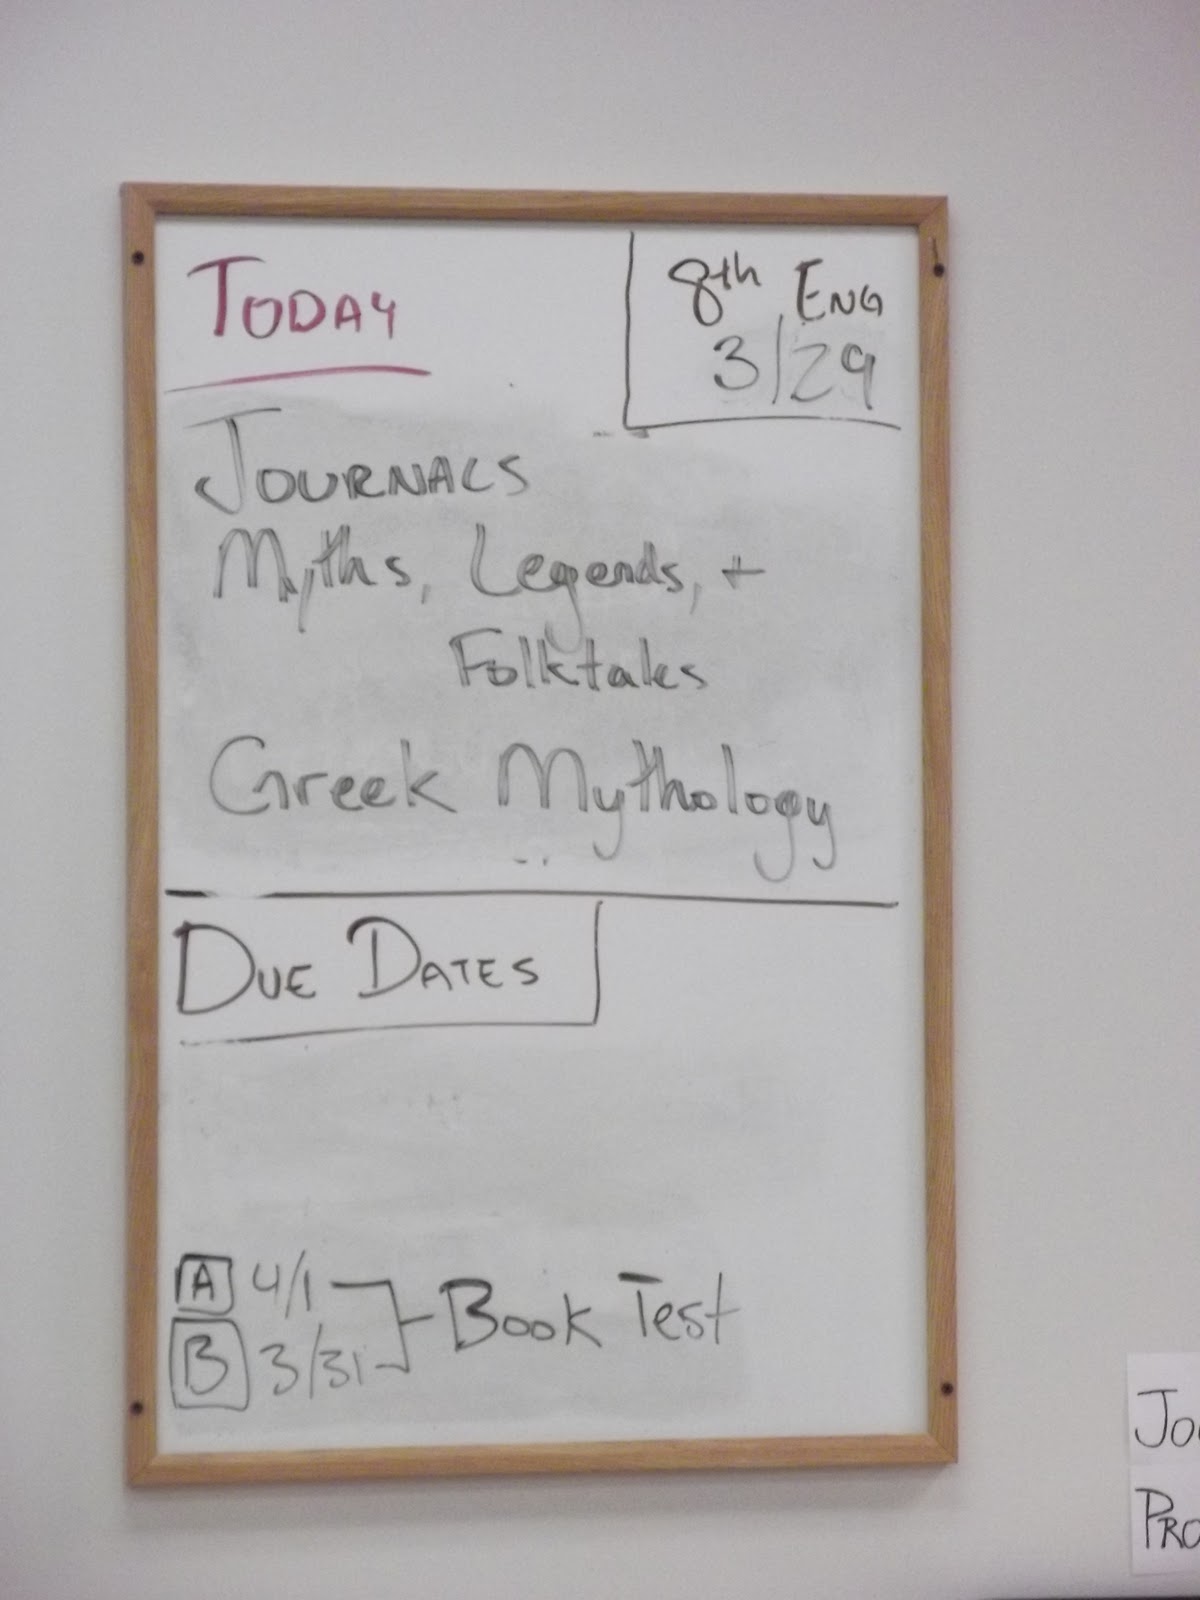 TODAY
8th ENG
3/29
JOURNALS
Myths, Legends, +
Folktales
Greek Mythology
DUE DATES
A 4/1
Book Test
B 3/31
JO
PRO